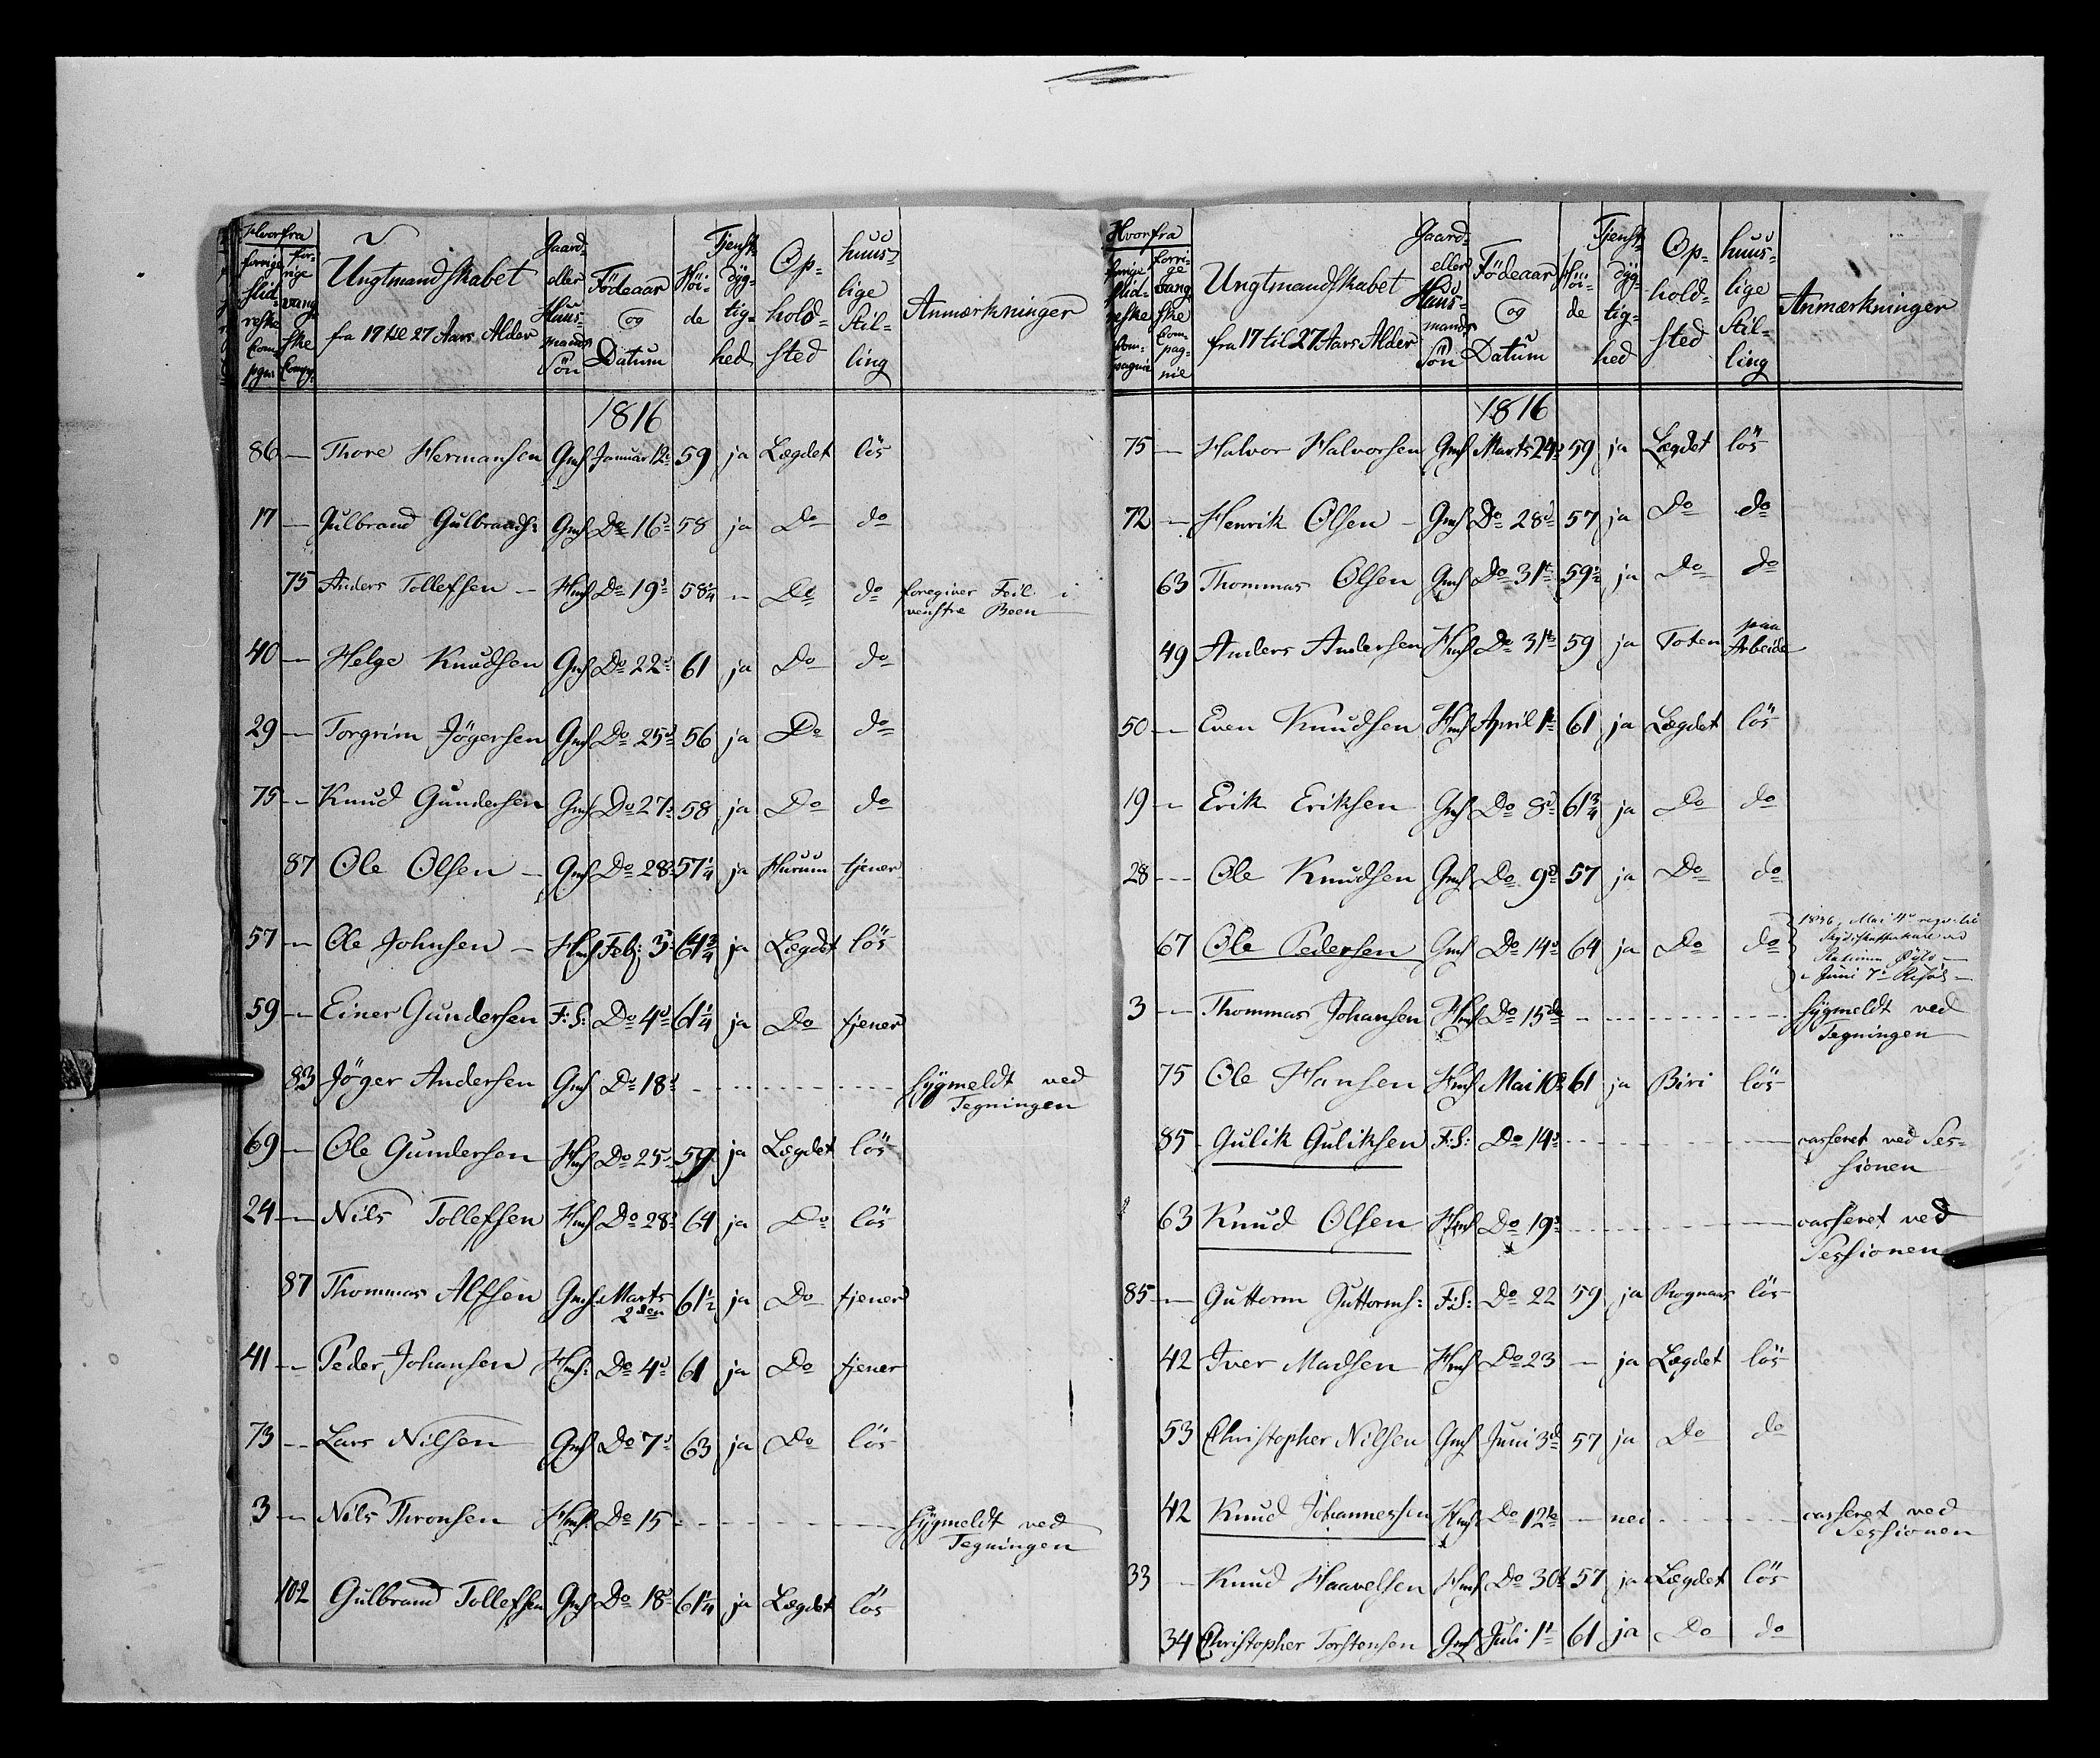 Hvorfra
forrige Slidreske Compgni
forrige vangske Compg:
Ungtmandskabet
fra 17 til 27 Aars Alder
Gaard- eller Huusmands Søn
Födeaar og Datum
Höide
Tjenstdygtighed
Ophold-sted
huuslige Stilling
Anmærkninger
1816
86 — Thore Hermansen Gms Januar 12 59 ja Lægdet lös
17 — Gulbrand Gulbrands: Gms Do 16d 58 ja Do do
75 Anders Tollefsen — Hms Do 19d 58 1/4 — Do do foregiver Feil i
venstre Been
40 — Helge Knudsen Gms Do 22d 61 ja Do do
29 — Torgrim Jögersen Gms Do 25d 56 ja Do do
75 — Knud Gundersen Gms Do 27d 58 ja Do do
87 Ole Olsen — Gms Do 28d 57 1/4 ja Hurum tjener
57 — Ole Johnsen — Hms Feb: 3d 64 3/4 ja Lægdet lös
59 — Einer Gundersen F: S: Do 4d 61 1/4 ja Do tjener
83 Jöger Andersen Gms Do 18d - - - - Sygmeldt ved
Tegningen
69 — Ole Gundersen Hms Do 25d 59 ja Lægdet lös
24 — Nils Tollefsen Hms Do 28d 64 ja Do lös
87 Thommas Alfsen Gms Marts 2den 61 1/2 ja Do tjener
41 — Peder Johansen Hms: Do 4d 61 ja Do tjener
73 — Lars Nilsen Gms Do 7d 63 ja Do lös
3 — Nils Thronsen Hms: Do 15 - - - - Sygmeldt ved
Tegningen
102 Gulbrand Tollefsen Gms Do 18d 61 1/4 ja Lægdet lös
Hvorfra
forrige Slidreske Compagnie
forrige vangske Compagnie
Ungtmandskabet
fra 17 til 27 Aars Alder
Gaard- eller Huusmands Sön
Födeaar og Datum
Höide
Tjenstdygtighed
Ophold-sted
huuslige Stilling
Anmærkninger
1816
75 — Halvor Halvorsen Gms Marts 24d 59 ja Lægdet lös
72 — Henrik Olsen — Gms Do 28d 57 ja Do do
63 Thommas Olsen Gms Do 31te 59 1/2 ja Do do
49 Anders Andersen Hms Do 31te 59 ja Toten paa Arbeide
50 — Even Knudsen Hms April 1te 61 ja Lægdet lös
19 — Erik Eriksen Gms Do 8d 61 3/4 ja Do do
28 — Ole Knudsen Gms Do 9d 57 ja Do do
67 Ole Pedersen Gms Do 14d 64 ja Do do 1836, Mai
Juni 7d
3 — Thommas Johansen Hms Do 15de - - - - Sygmeldt ved
Tegningen
75 Ole Hansen Hms Mai 10d 61 ja Biri lös
85 Gulik Guliksen F: S: Do 14d - - - - casseret ved Ses-
sionen
63 Knud Olsen Hms Do 19d - - - - casseret ved
Sessionen
85 — Guttorm Guttorms: F: S: Do 22 59 ja Rognaas lös
42 Iver Madsen Hms Do 23 — ja Lægdet lös
53 Christopher Nilsen Gms Juni 3d 57 ja Do do
42 Knud Johannessen Hms Do 12te — nei - - - casseret ved
Sessionen
33 — Knud Haavelsen Hms Do 30te 57 ja Lægdet lös
34 Christopher Torstensen Gms Juli 1te 61 ja Do do